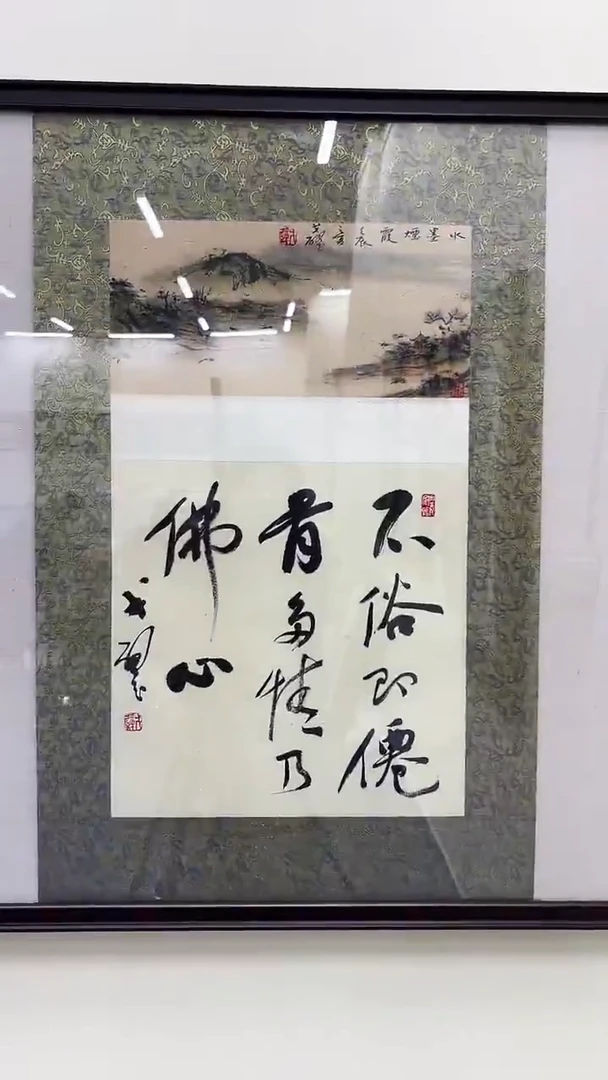 水墨煙霞壬辰
不俗即僊
骨多情乃
佛心